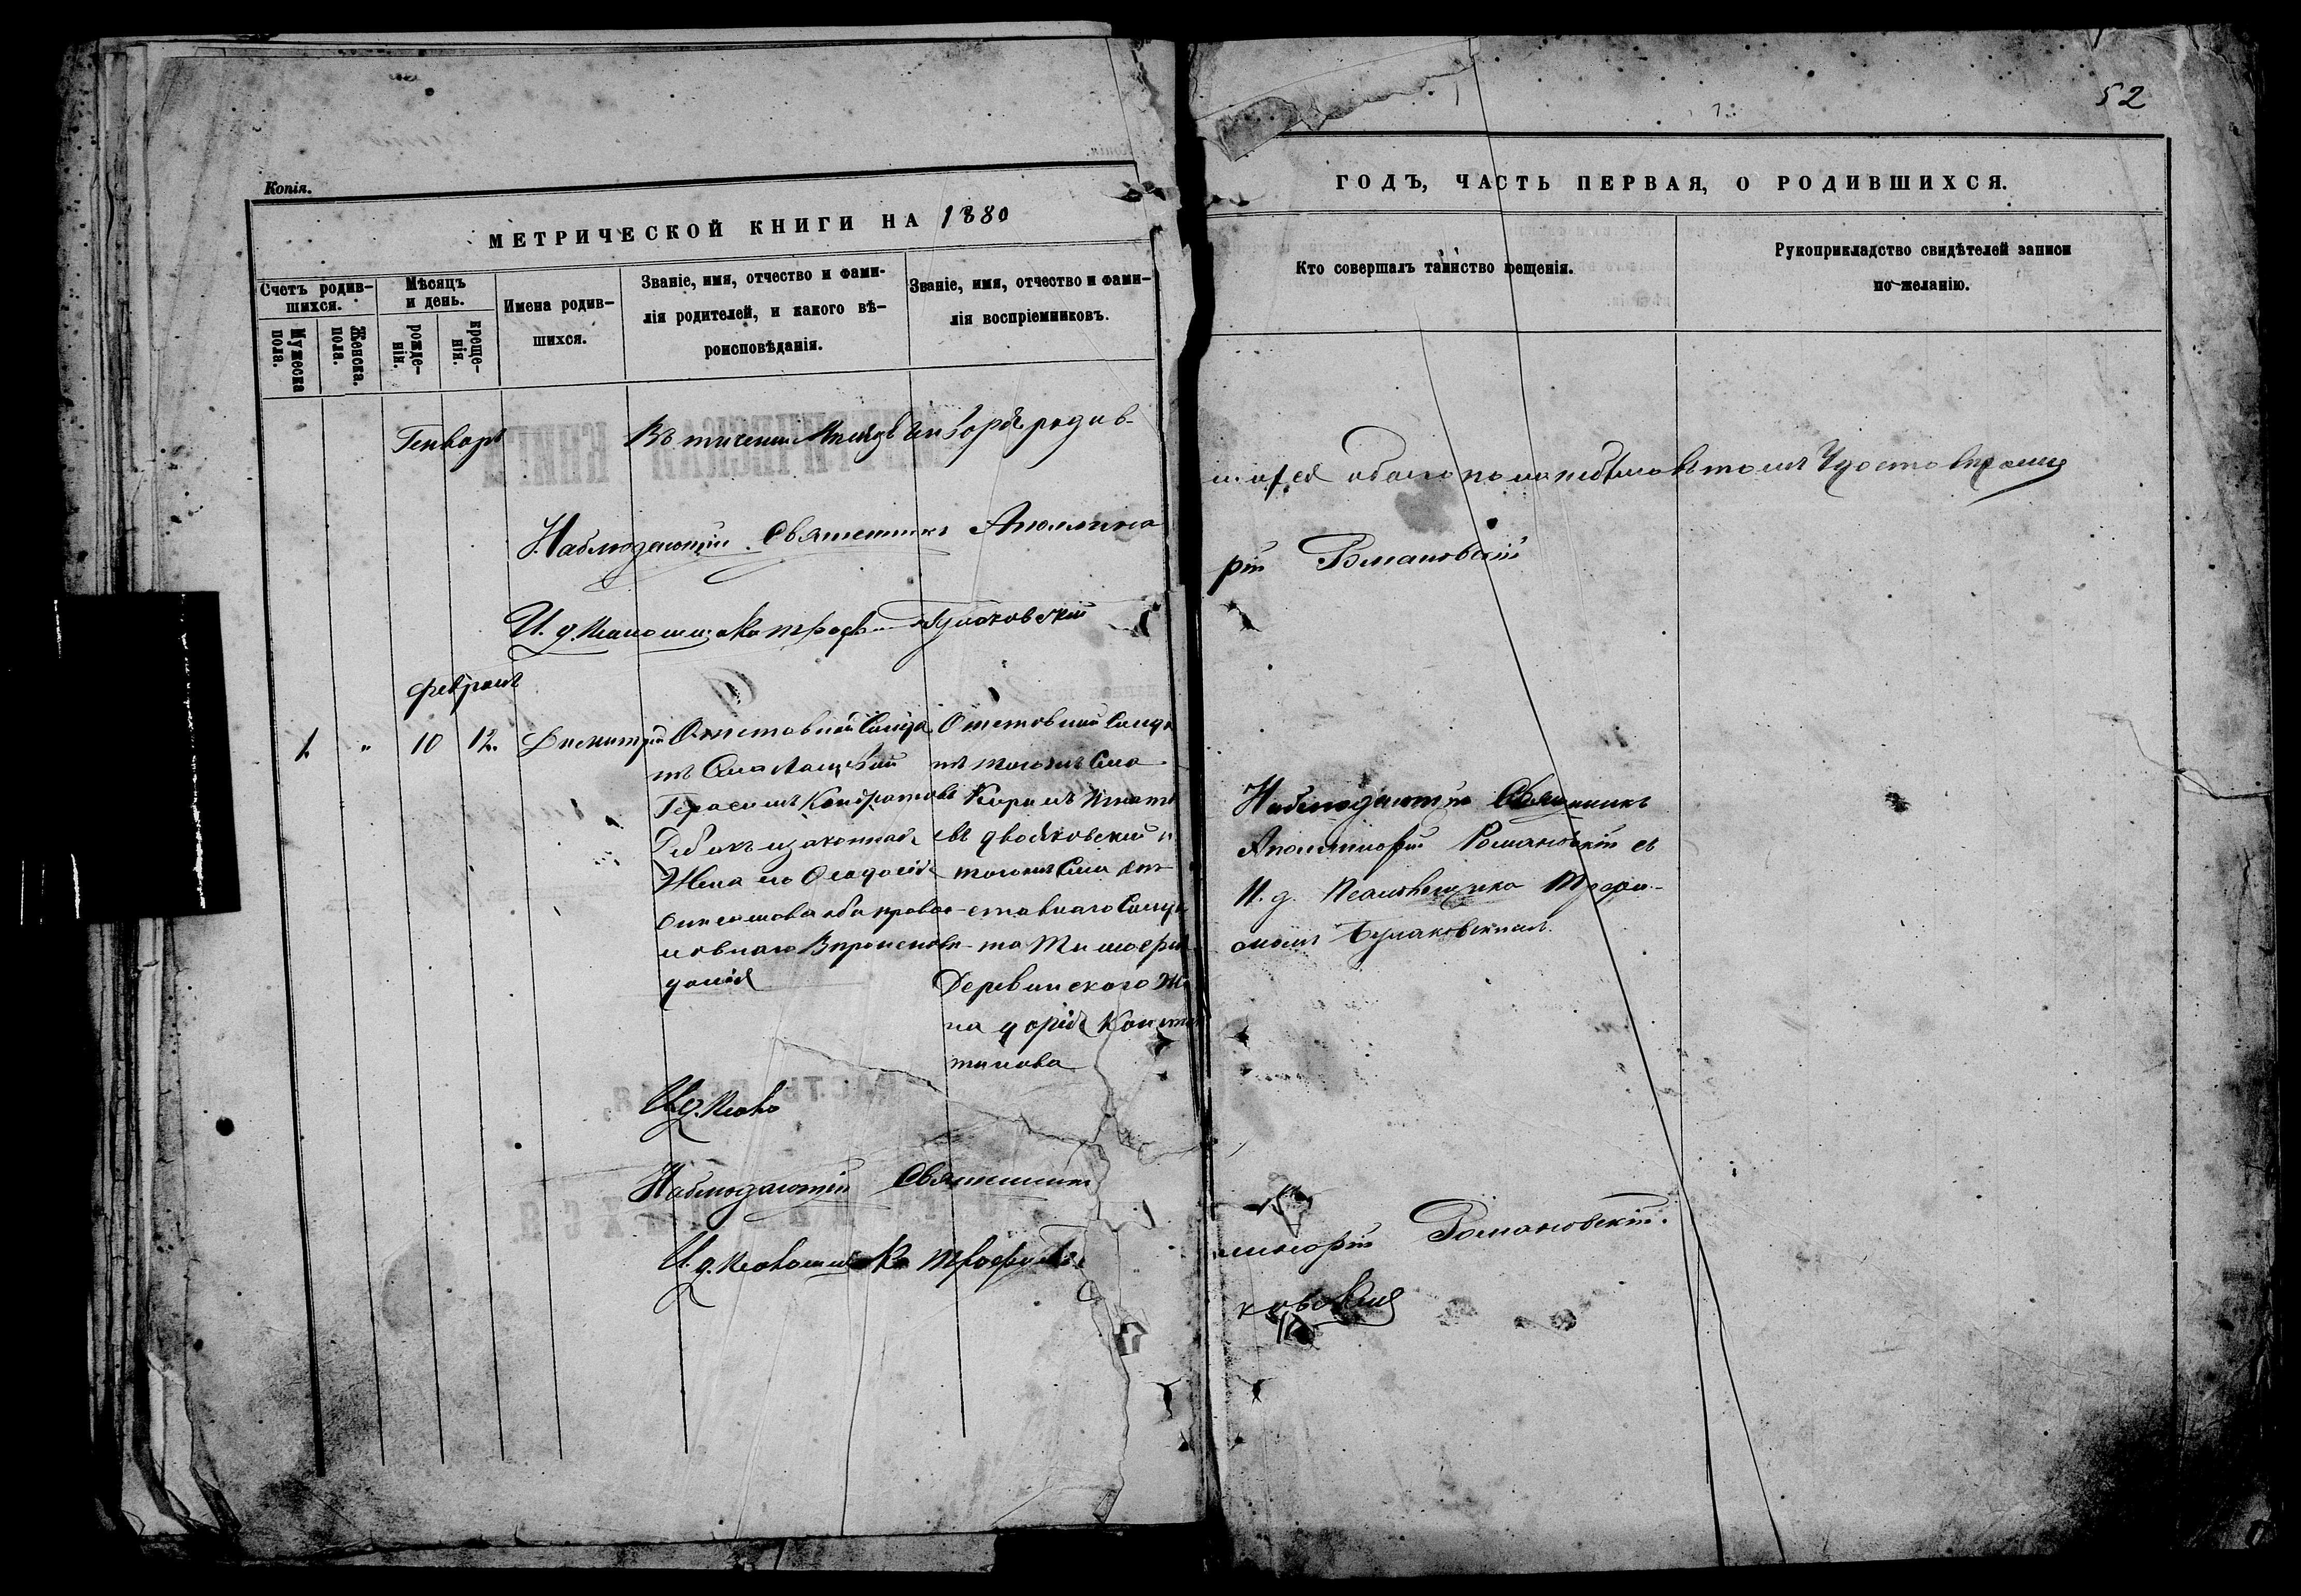 52
Копія.
МЕТРИЧЕСКОЙ КНИГИ НА 1880
ГОДЪ, ЧАСТЬ ПЕРВАЯ, О РОДИВШИХСЯ.
Счетъ родив-
шихся.
Мужеска
пола.
Женска.
пола.
Мѣсяцъ
и день.
рожде-
нія.
креще-
нія.
Имена родив-
шихся.
Званіе, имя, отчество и фами-
лія родителей, и какого вѣ-
роисповѣданія.
Званіе, имя, отчество и фами-
лія воспріемниковъ.
Кто совершалъ таинство рещенія.
Рукоприкладство свидѣтелей записи
по желанію.
Генварь
Въ теченіи Генварѣ родив-
шихся обоего пола небыло вътомъ
Наблюдающій Священникъ Аполлина
рій Романовскій
И. д. Псаломщика Булаковскій
Февраль
1. " 10 12. Димитрій
Отставной Солда
тъ Села
Герасимъ Кондратовъ
изаконная
Жена его
оба право
славнаго Вѣроисповѣ
данія
Отставной Солда
тъ тогожъ Села
тогожъ Села От
ставнаго Солда
та Тимофея
Деревинскаго Же
на Констан
тинова
Наблюдающій Священникъ
Аполлинарій Романовскій съ
И. д. Псаломщика Трофи-
момъ Булаковскимъ.
И. д. Псало
Наблюдающій Священникъ
линарій Романовскій.
И. д. Псаломщика Трофимъ
ковскій